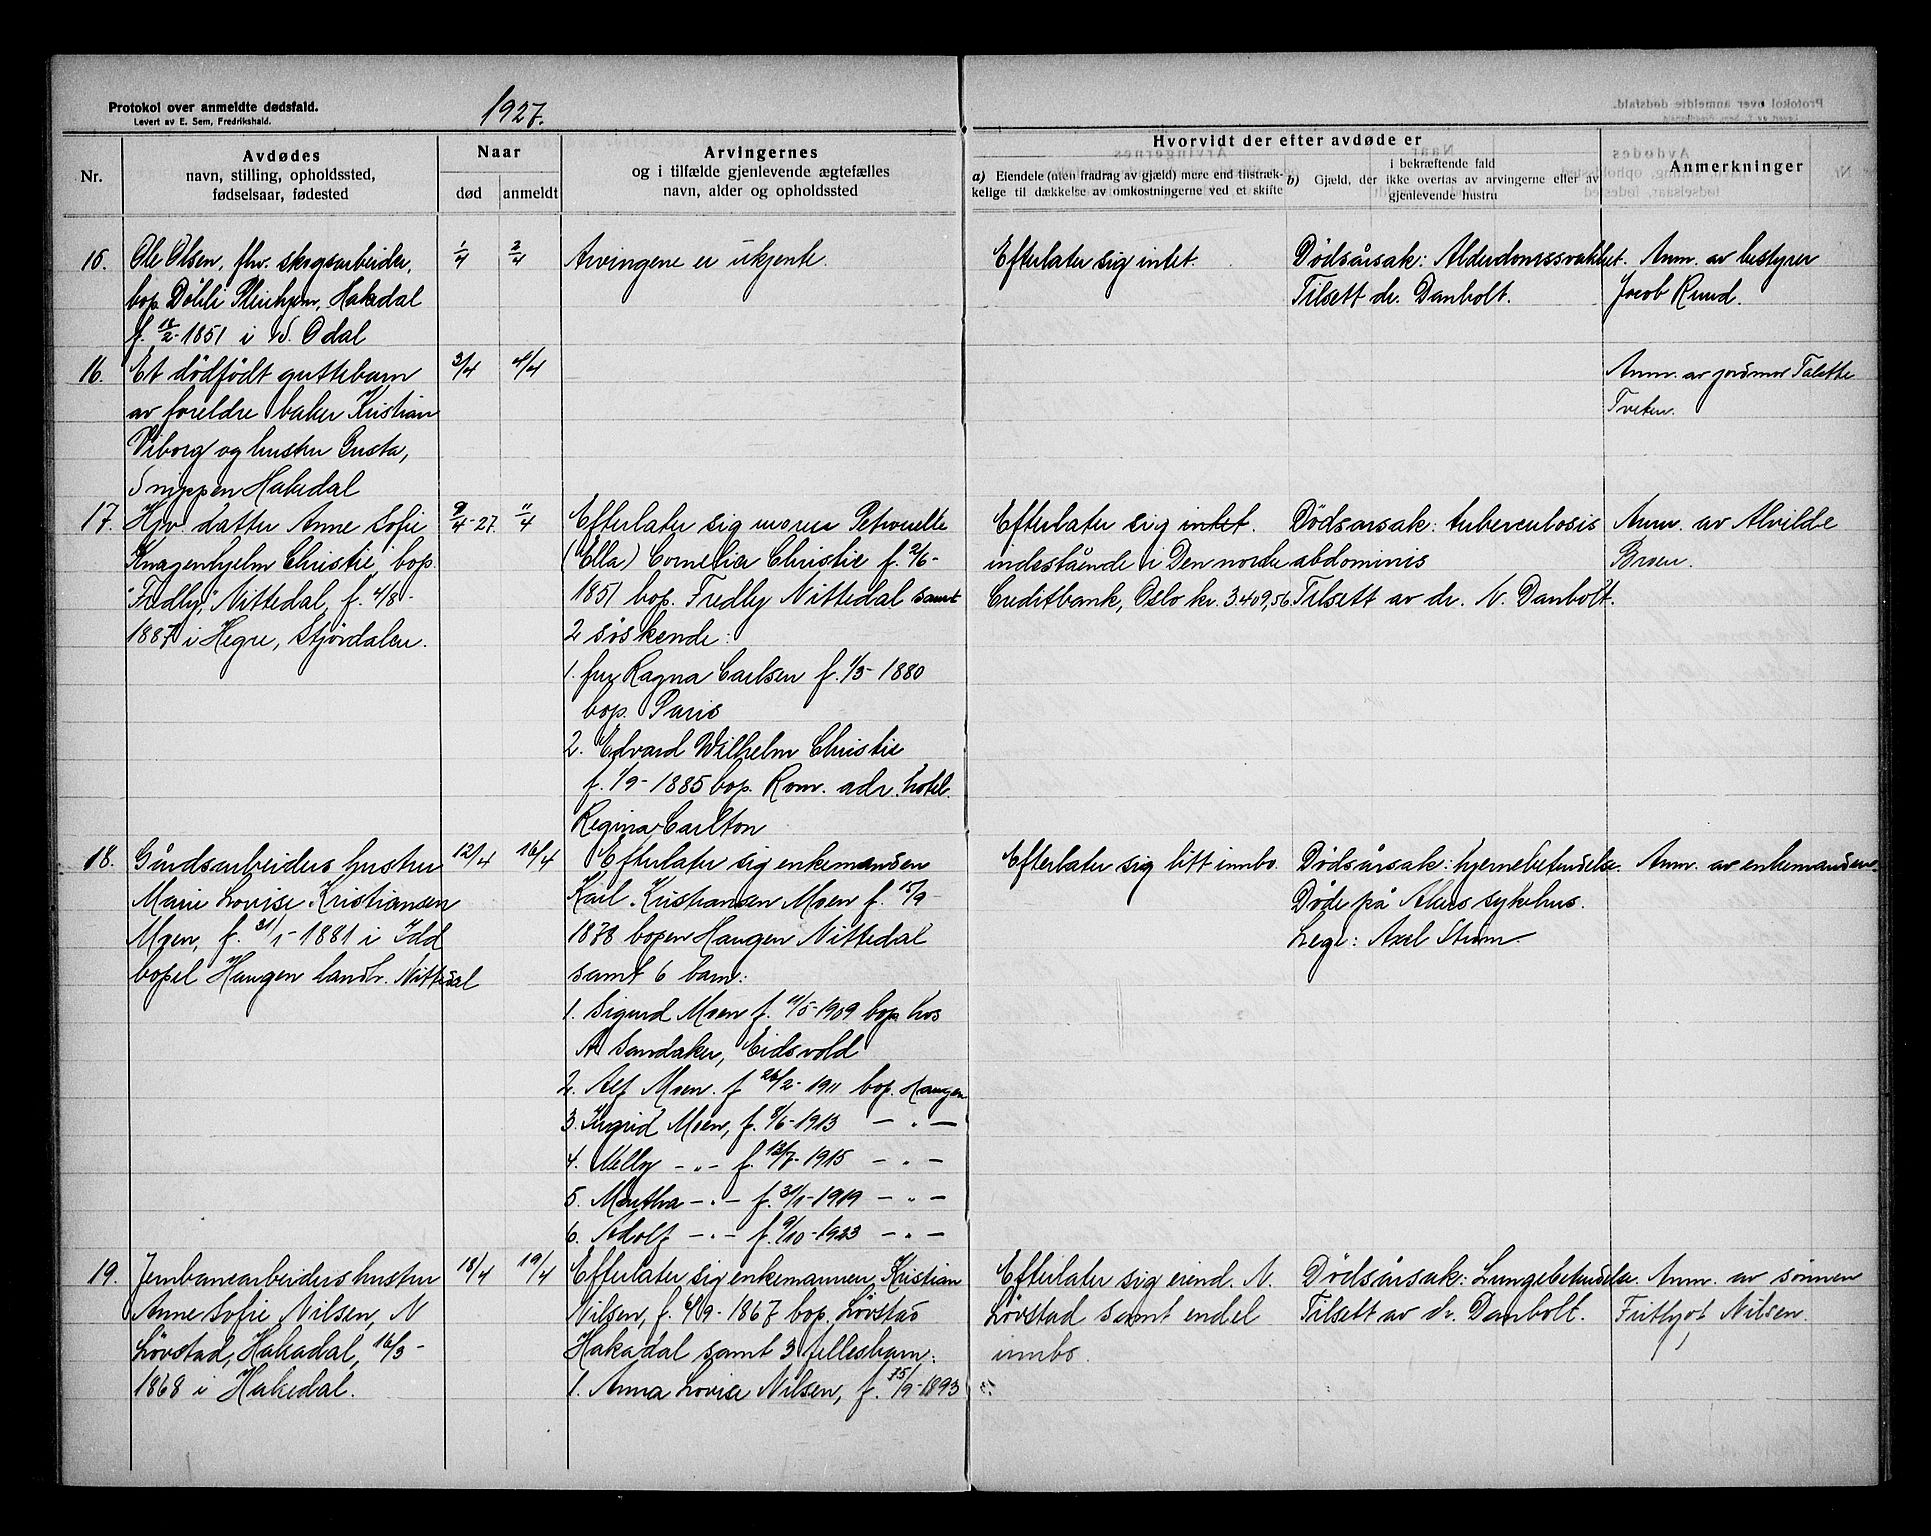 Protokol over anmeldte dødsfald.
Levert av E. Sem, Fredrikshald.
1927.
Nr.
Avdødes
navn, stilling, opholdssted,
fødselsaar, fødested
Naar
død
anmeldt
Arvingernes
og i tilfælde gjenlevende ægtefælles
navn, alder og opholdssted
Hvorvidt der efter avdøde er
a) Eiendele (uten fradrag av gjæld) mere end tilstræk-
kelige til dækkelse av omkostningerne ved et skifte
i bekræftende fald
b) Gjæld, der ikke overtas av arvingerne eller av
gjenlevende hustru
Anmerkninger
15.
Ole Olsen, fhv. skogsarbeider,
bop Döhli Pleiehjem, Hakadal
f. 12/2-1851 i S. Odal
1/4
2/4
Arvingene er ukjente.
Efterlater sig intet.
Dødsårsak: Alderdomssvakhet.
Tilsett dr. Danbolt.
Anm. av bestyrer
Jacob Ruud.
16.
Et dödfödt guttebarn
av foreldre baker Kristian
Viborg og hustru Gusta,
Snippen Hakedal
3/4
4/4
Anm. av jordmor
Tveten.
17.
Hjv. datter Anne Sofie
Knagenhjelm Christie, bop.
"Fredly," Nittedal, f. 4/8-
1887 i Hegre, Stjördalen.
9/4-27.
11/4
Efterlater sig moren Petronelle
(Ella) Cornelia Christie f. 2/6-
1851 bop. Fredly Nittedal samt
2 söskende:
1. fru Ragna Carlsen f. 1/3-1880
bop. Paris
2. Edvard Wilhelm Christie
f. 1/9-1885 bop. Rom. adr. hotel.
Regina Carlton
Efterlater sig intet.
indestående i Den norske
Creditbank, Oslo kr. 3.409,56
Dødsårsak: tuberculosis
abdominis
Tilsett av dr. N. Danbolt.
Anm. av Alvilde
Broen.
18.
Gårdsarbeiders hustru
Marie Lovise Kristiansen
Moen, f. 31/1-1881 i Idd
bopel Haugen landbr. Nittedal
12/4
16/4
Efterlater sig enkemannen
Karl Kristiansen Moen f. 15/9-
1878 bopen Haugen Nittedal
samt 6 barn:
1. Sigurd Moen f. 11/5-1909 bop. hos
A Sandaker, Eidsvold
2. Alf Moen. f 26/2-1911 bop. Haugen
3. Ingrid Moen, f. 8/6-1913 — „ —
4. Nelly — „ — f. 13/7-1915 — „ —
5. Martha — „ — f. 31/1-1919 — „ —
6. Adolf — „ — f. 9/10-1923 — „ —
Efterlater sig litt innbo.
Dødsårsak: hjernebetendelse.
Døde på Akers sykehus.
Lege: Axel Strøm.
Anm. av enkemanden.
19.
Jernbanearbeiders hustru
Anne Sofie Nilsen, N
Lövstad, Hakadal, 16/3-
1868 i Hakedal.
18/4
19/4
Efterlater sig enkemannen Kristian
Nilsen, f. 6/9-1867 bop. Lövstad
Hakadal samt 3 fellesbarn:
1. Anna Lovise Nilsen, f. 25/9-1893
Efterlater sig eiend. N.
Lövstad samt endel
innbo.
Dødsårsak: Lungebetendelse.
Tilsett av dr. Danbolt.
Anm. av sønnen
Frithjof Nilsen.